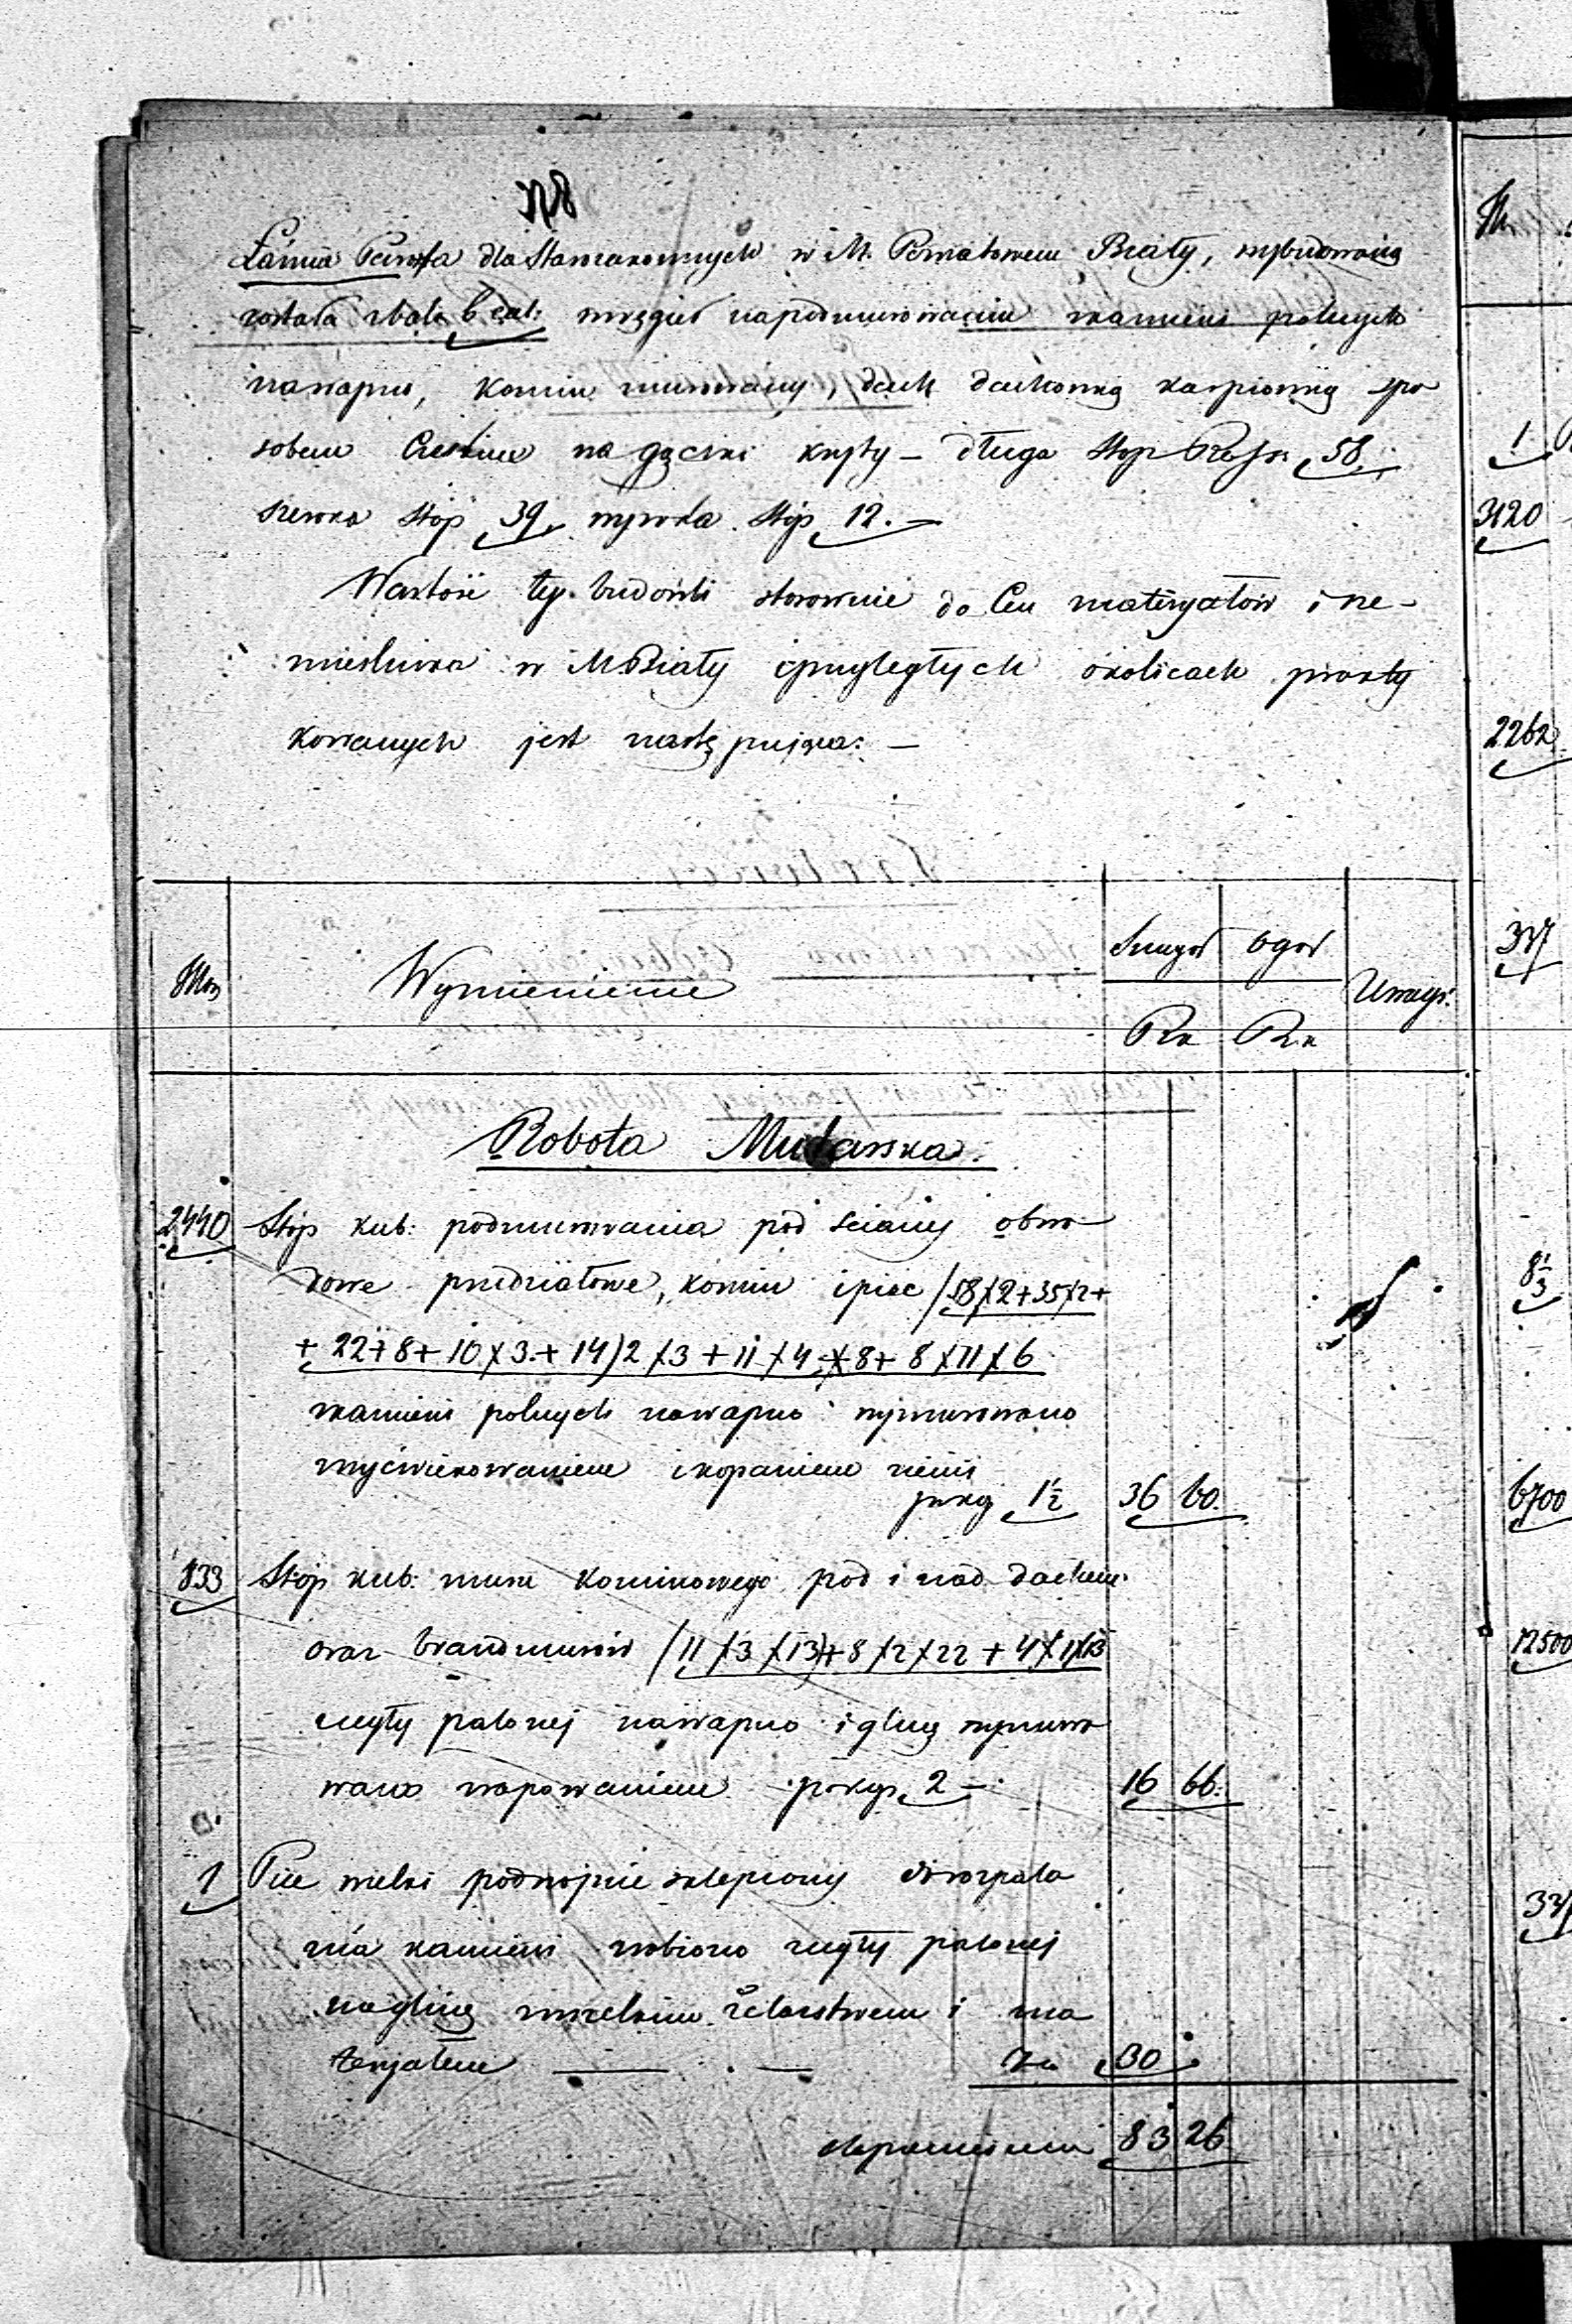 Łaźnia Parowa dla Starozakonnych w M. Powiatowem Biały, wybudowaną
została z bali 6 cal: w węgieł na podmurowaniu z kamieni polnych
na wapno, komin murowany, dach dachówką karpiówką spo
sobem Czeskim na gąciski kryty – długa Stop Ross: 58,
szeroka Stóp 39, wysoka Stóp 12. –
Wartość tej budowli stosownie do Cen materyałów i rze-
mieślnika w M. Biały i przyległych okolicach prakty
kowanych jest następująca: –
Wymienienie
Szczegół
Ogół
Uwagi.
Rs. k
Rs. k
Robota Mularska.
2440 Stóp kub: podmurowania pod ściany obwo-
dowe przedziałowe, komin i piec /58×2+35×2+
+ 22+8+10×3+14)2×3+11×4×8+8×11×6
z kamieni polnych na wapno wymurowano
z wyćwiekowaniem i kopaniem ziemi
po kop 1½ 36 60.
833 Stóp kub: muru kominowego pod i nad dachem
oraz brandmurów /11×3×13)+8×2×22+4×1×13
z cegły palonej na wapno i glinę wymuro
wano z wapowaniem po kop. 2 –. 16 66.
1 Piec wielki podwójnie sklepiony do rozpala
nia kamieni zrobiono z cegły palonej
na glinę z wszelkim żelastwem i ma
teryałem — . — za 30
do przeniesienia 83 26
1
3120
2262
317
8⅓
6700
12500